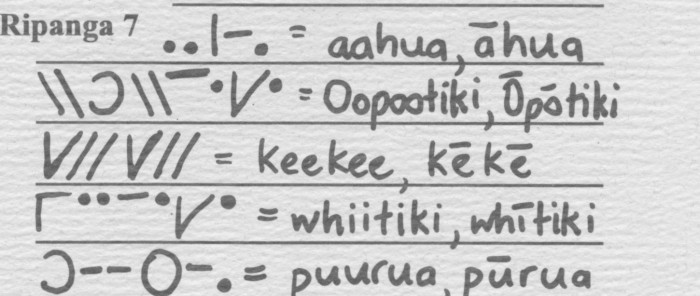 Ripanga 7
= aahua, āhua
= Oopootiki, Ōpōtiki
= keekee, kēkē
= whiitiki, whītiki
= puurua, pūrua